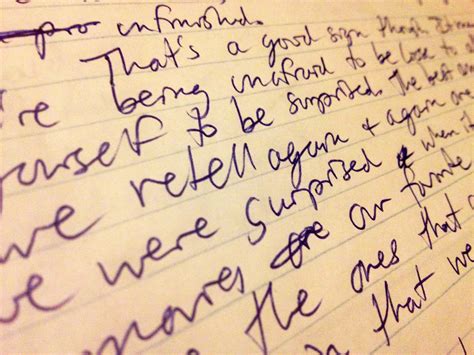 unfinished.
That's a good sign though.
're being unafraid to be close to
yourself to be surprised. The best
we retell again & again
we were surprised & when
movies are our favorite
the ones that
in that we